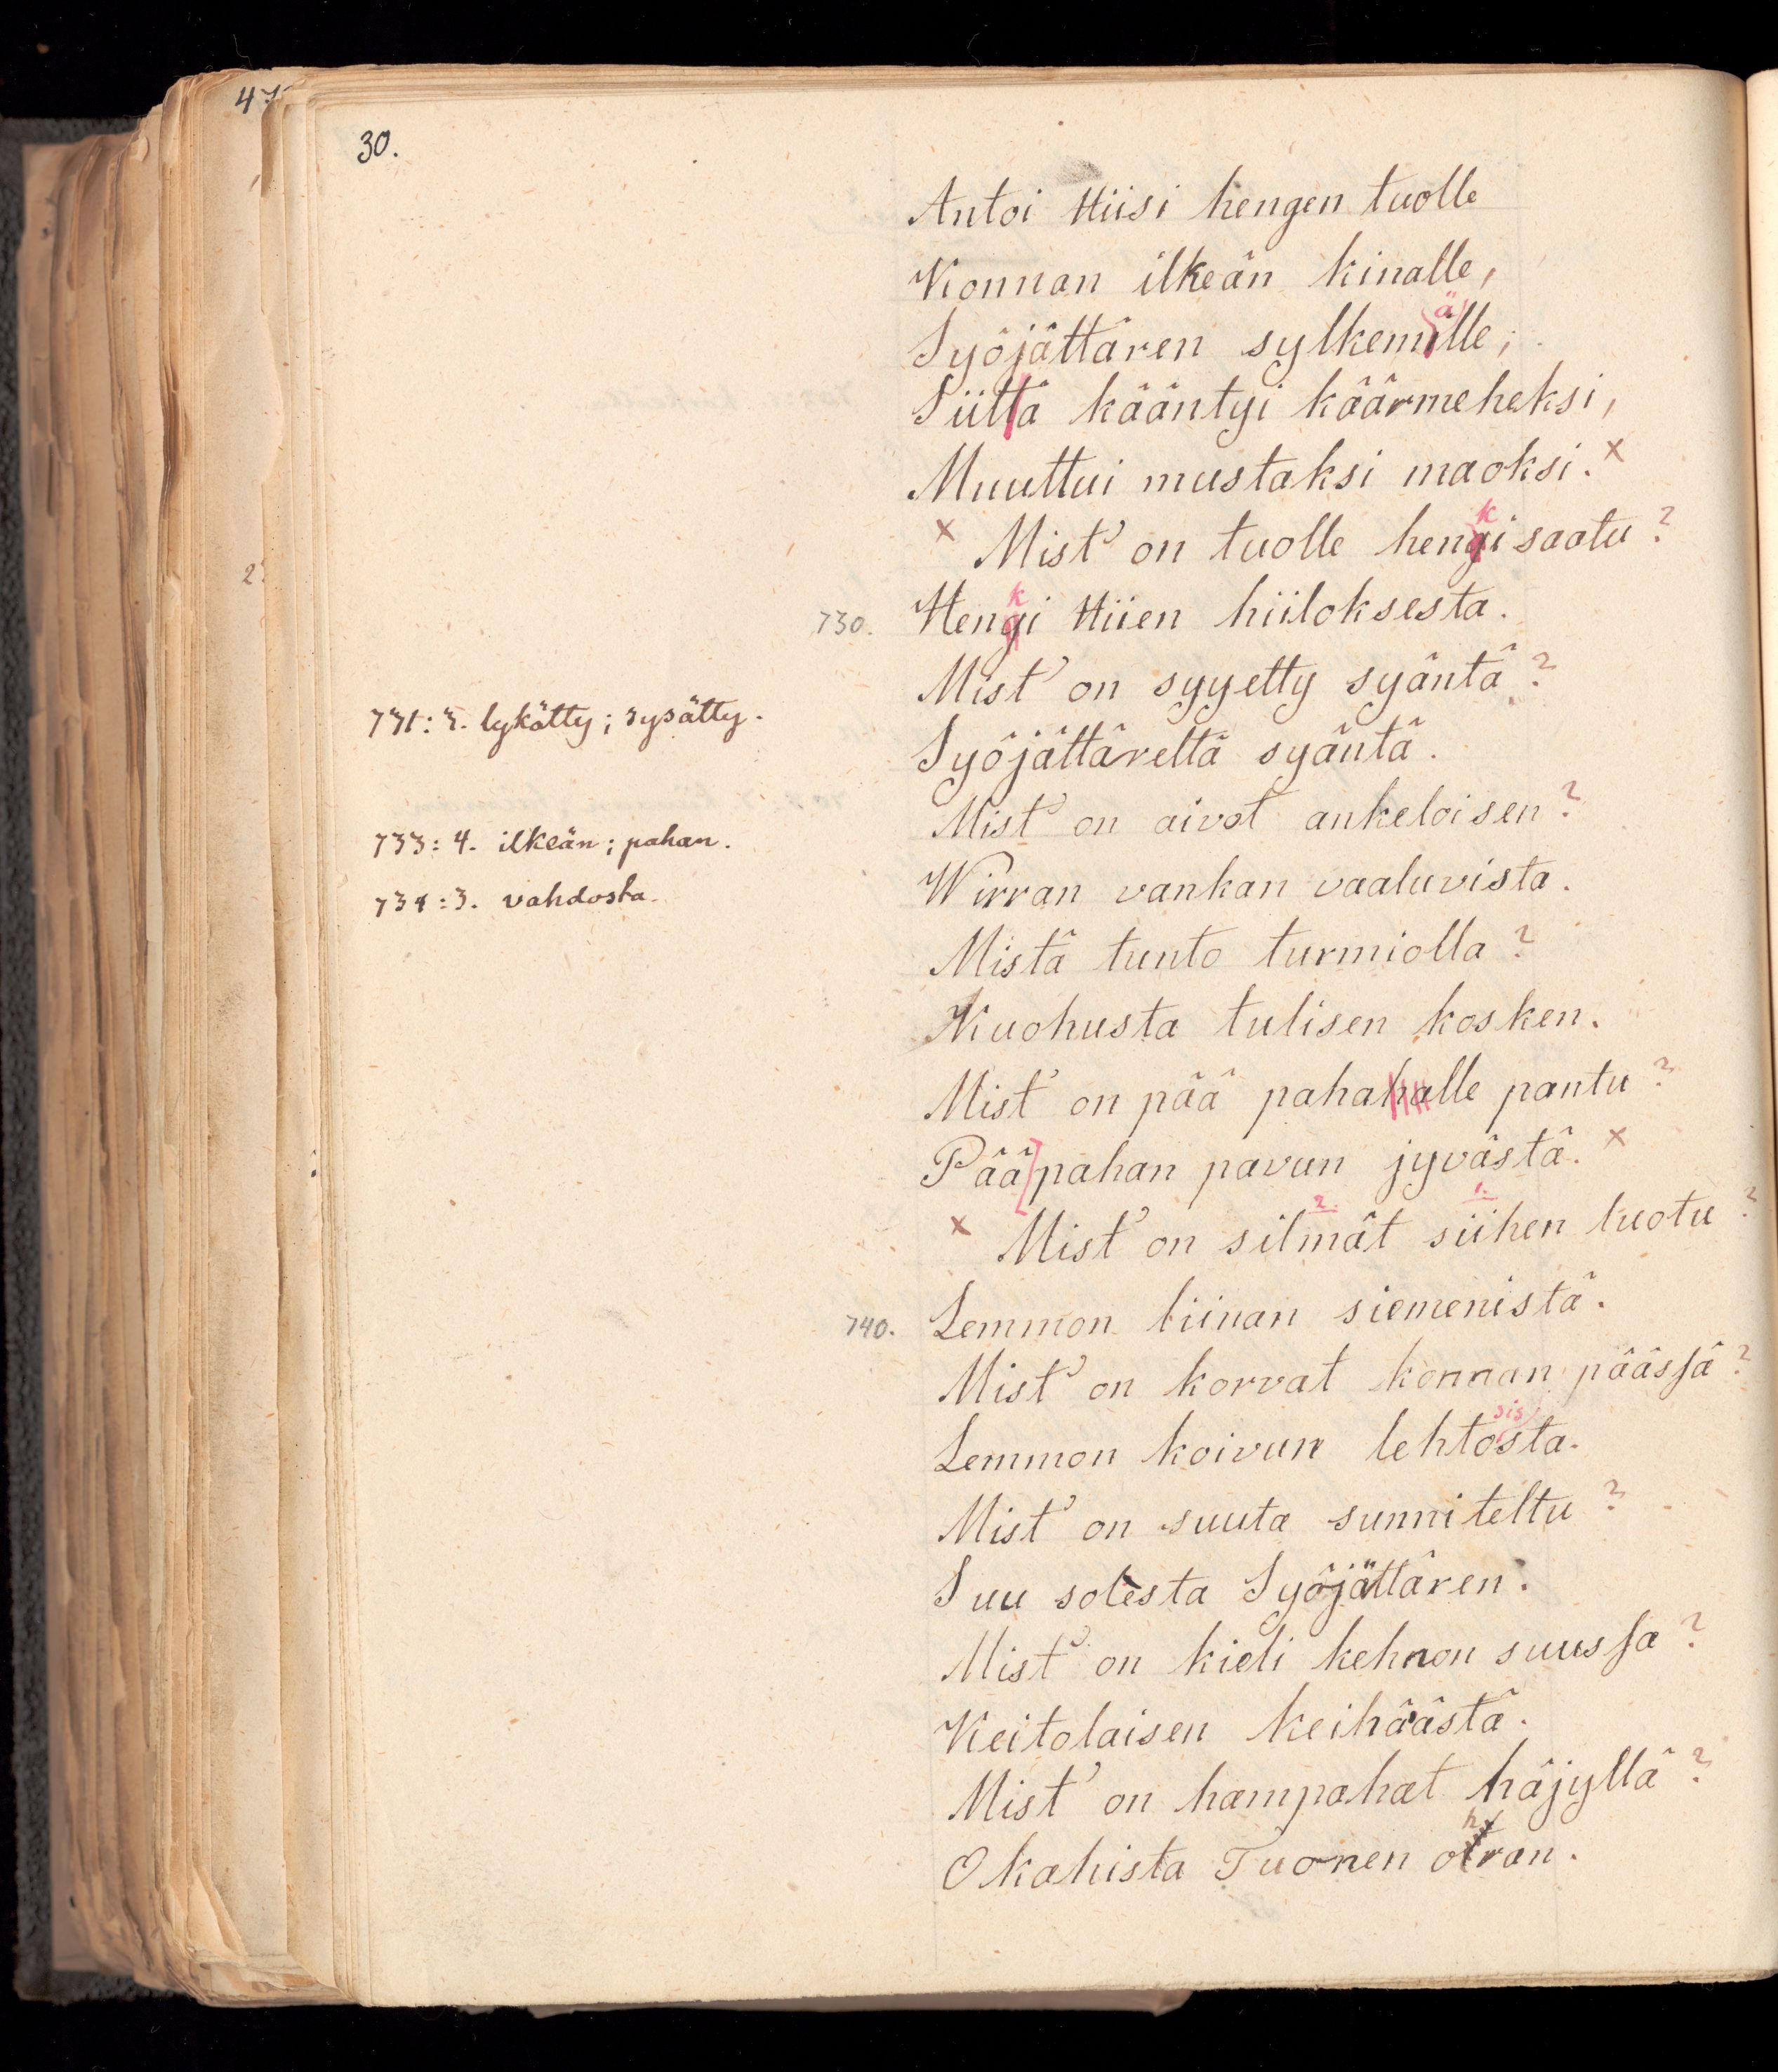 30.
Antoi Hiisi hengen tuolle
Konnan ilkeän kinalle,
Syöjättären sylkemälle;
Siitä kääntyi käärmeheksi,
Muuttui mustaksi maoksi. x
x Mist' on tuolle henki saatu?
730. Henki Hiien hiiloksesta.
Mist' on syyetty syäntä?
731: 3. lykätty; sysätty.
Syöjättäreltä syäntä.
Mist' on aivot ankeloisen?
733: 4. ilkeän; pahan.
Wirran vankan vaaluvista.
734: 3. vahdosta.
Mistä tunto turmiolla?
Kuohusta tulisen kosken.
Mist' on pää pahalle pantu?
Pää pahan pavun jyvästä. x
x Mist' on silmät siihen luotu?
2. 1.
740. Lemmon liinan siemenistä.
Mist' on korvat konnan päässä?
Lemmon koivun lehtosista.
Mist' on suuta sunniteltu?
Suu solesta Syöjättären.
Mist' on kieli kehnon suussa?
Keitolaisen keihäästä.
Mist' on hampahat häjyllä?
Okahista Tuonen ohran.